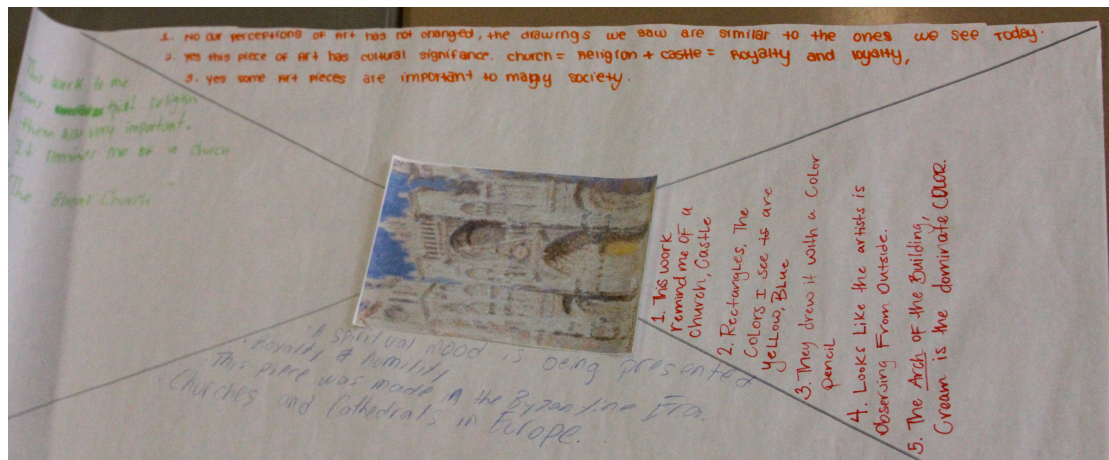 1. No our perceptions of Art has not changed, the drawings we saw are similar to the ones we see Today.
2. yes this piece of Art has cultural signifance. church = Religion + castle = Royalty and loyalty,
3. yes some Art pieces are important to many society.
This work to me
that religion
very important.
It me of a church
The Church
1. This work
remind me OF a
church, Castle
2. Rectangles, The
Colors I see are
yellow, Blue
3. They drew it with a Color
pencil
4. Looks Like the artists is
Observing From Outside.
5. The Arch OF the Building,
Cream is the dominate COLOR.
· A spiritual mood is being presented
· Royalty & humility
This piece was made in the Byzantine Era.
Churches and Cathedrals in Europe.